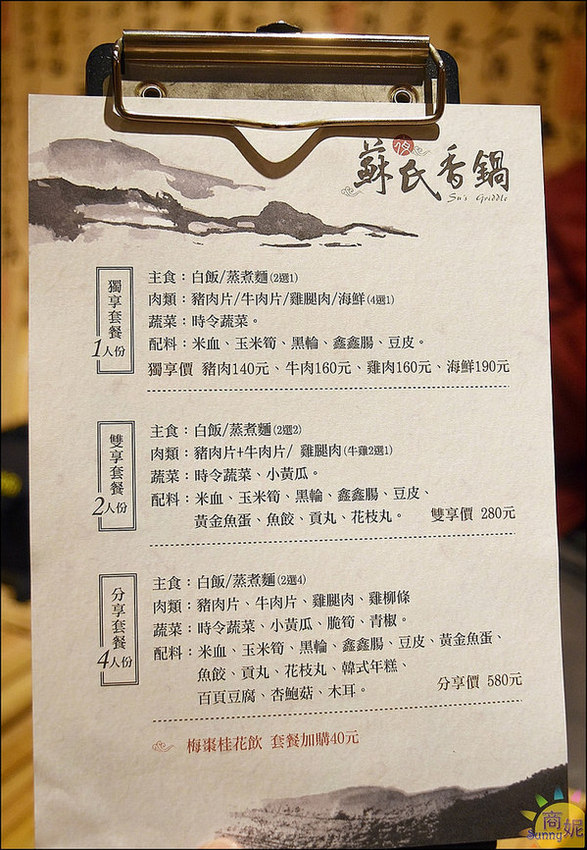 蘇氏香鍋
Su's Griddle
獨享套餐
1人份
主食：白飯/蒸煮麵(2選1)
肉類：豬肉片/牛肉片/雞腿肉/海鮮(4選1)
蔬菜：時令蔬菜。
配料：米血、玉米筍、黑輪、鑫鑫腸、豆皮。
獨享價 豬肉140元、牛肉160元、雞肉160元、海鮮190元
雙享套餐
2人份
主食：白飯/蒸煮麵(2選2)
肉類：豬肉片+牛肉片/ 雞腿肉(牛雞2選1)
蔬菜：時令蔬菜、小黃瓜。
配料：米血、玉米筍、黑輪、鑫鑫腸、豆皮、
黃金魚蛋、魚餃、貢丸、花枝丸。 雙享價 280元
分享套餐
4人份
主食：白飯/蒸煮麵(2選4)
肉類：豬肉片、牛肉片、雞腿肉、雞柳條
蔬菜：時令蔬菜、小黃瓜、脆筍、青椒。
配料：米血、玉米筍、黑輪、鑫鑫腸、豆皮、黃金魚蛋、
魚餃、貢丸、花枝丸、韓式年糕、
百頁豆腐、杏鮑菇、木耳。 分享價 580元
梅棗桂花飲 套餐加購40元
商妮
Sunny